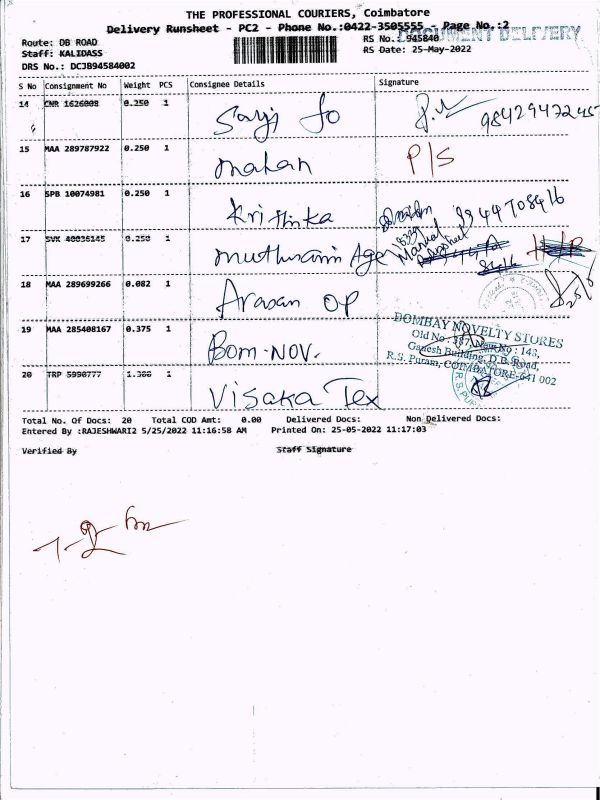 THE PROFESSIONAL COURIERS, Coimbatore
Delivery Runsheet - PC2 - Phone No.:0422-3505555 - Page No.:2
DOCUMENT DELIVERY
Route: DB ROAD
RS No.: 945840
Staff: KALIDASS
RS Date: 25-May-2022
DRS No.: DCJB94584002
S No Consignment No Weight PCS Consignee Details Signature
14 CNR 1626008 0.250 1
15 MAA 289787922 0.250 1 mahan P/S
16 SPB 10074981 0.250 1 Krithika 9944708416
17 SVK 40036145 0.250 1 Manual
18 MAA 289699266 0.082 1 Arasan OP
19 MAA 285408167 0.375 1 Bom-NOV.
BOMBAY NOVELTY STORES
Old No : 387, New No : 143,
Ganesh Building, D.B. Road,
R.S. Puram, COIMBATORE-641 002
20 TRP 5990777 1.300 1 Visaka Tex
Total No. Of Docs: 20 Total COD Amt: 0.00 Delivered Docs: Non Delivered Docs:
Entered By :RAJESHWARI2 5/25/2022 11:16:58 AM Printed On: 25-05-2022 11:17:03
Verified By Staff Signature